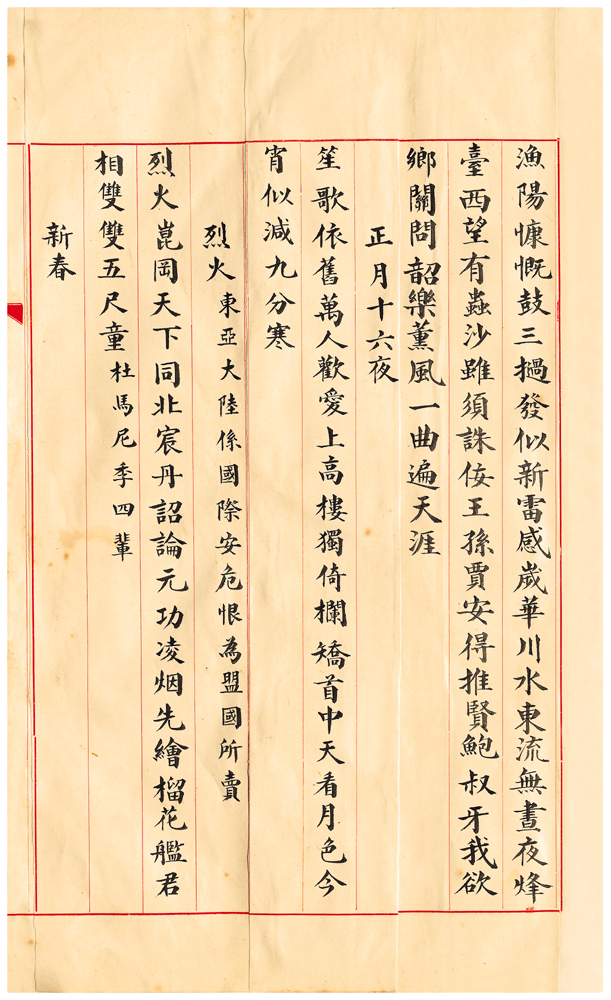 漁陽慷慨鼓三撾發似新雷感歲華川水東流無晝夜烽
臺西望有蟲沙雖須誅佞王孫賈安得推賢鮑叔牙我欲
鄉關問韶樂薰風一曲遍天涯
正月十六夜
笙歌依舊萬人歡愛上高樓獨倚欄矯首中天看月色今
宵似減九分寒
烈火東亞大陸係國際安危恨為盟國所賣
烈火崑岡天下同北宸丹詔論元功凌烟先繪榴花艦君
相雙雙五尺童杜馬尼季四輩
新春